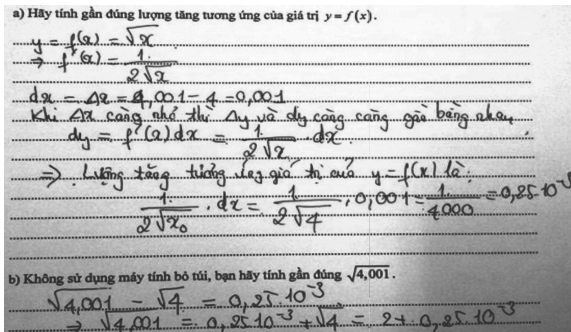 a) Hãy tính gần đúng lượng tăng tương ứng của giá trị y = f(x).
y = f(x) = √x
⇒ f'(x) = 1/(2√x)
dx = Δx = 4,001 - 4 = 0,001
Khi Δx càng nhỏ thì Δy và dy càng càng gần bằng nhau
dy = f'(x)dx = 1/(2√x) . dx
⇒ Lượng tăng tương ứng giá trị của y = f(x) là:
1/(2√x₀) . dx = 1/(2√4) . 0,001 = 1/4000 = 0,25.10⁻³
b) Không sử dụng máy tính bỏ túi, bạn hãy tính gần đúng √4,001.
√4,001 - √4 = 0,25.10⁻³
⇒ √4,001 = 0,25.10⁻³ + √4 = 2 + 0,25.10⁻³